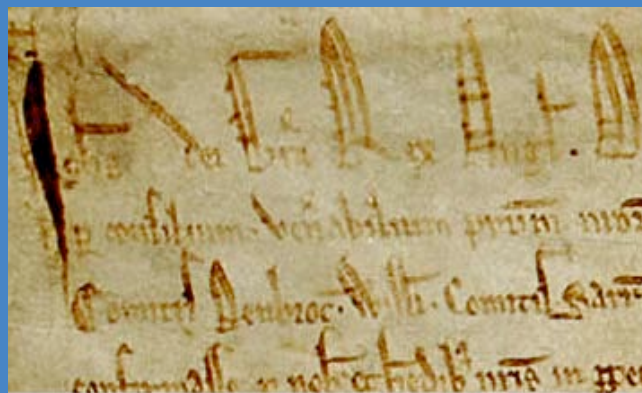 Johs dei Gra Rex Angl.
p consilium. Ven̄abilium pr̄um nr̄o
Comitis Penbroc. Willi. Comitis Sarr
confirmasse p nob et hedib nris in ppe